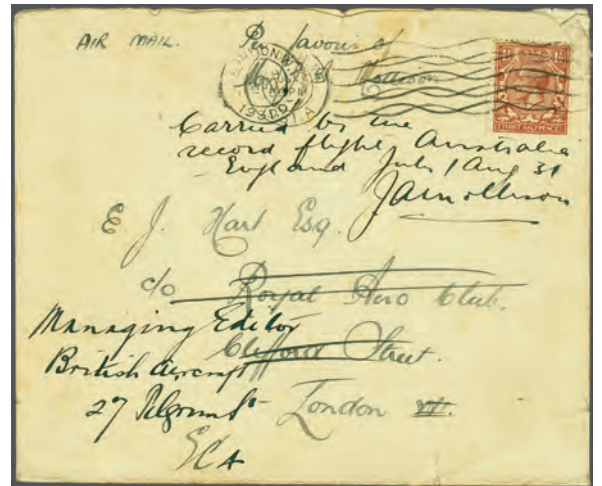 AIR MAIL.
Per favour of
J Mollison
LONDON W.1
193
1A
Carried by me
record flight, Australia
England July / Aug 31
JAMollison
E J. Hart Esq.
c/o Royal Aero Club.
Managing Editor
Clifford Street.
British Aircraft
27 Pilgrim St
London W.
EC4
THREE HALFPENCE